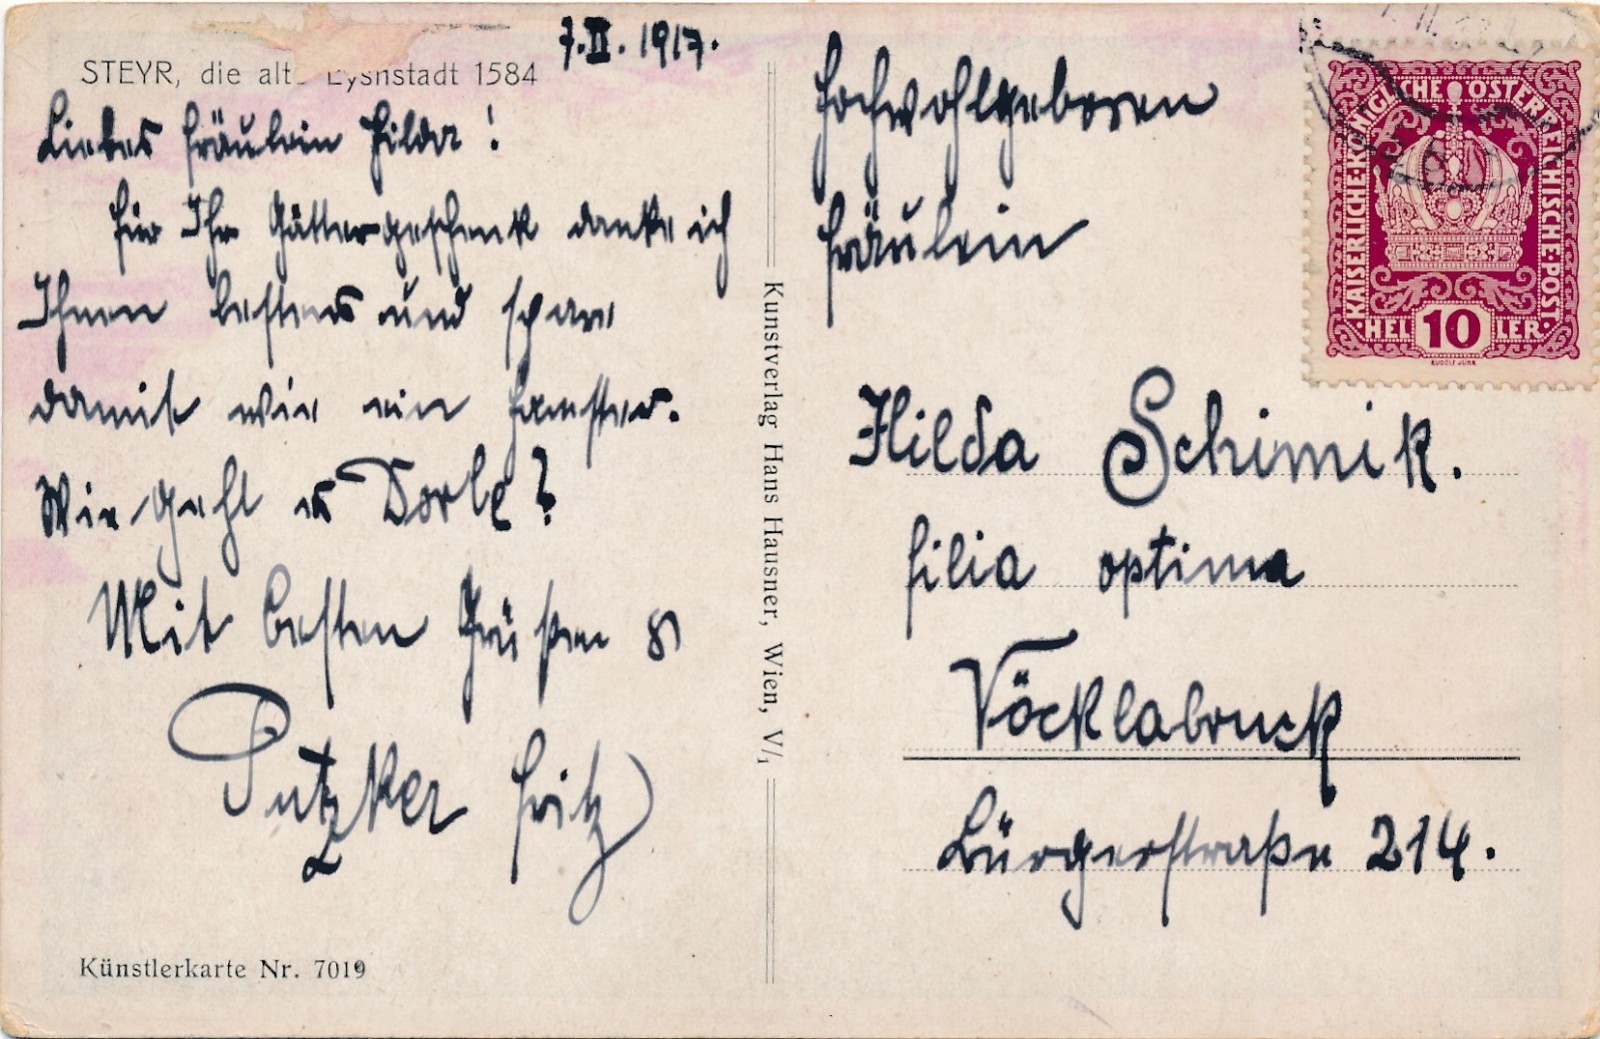 7.II.1917.
STEYR, die alte Eysnstadt 1584
Liebes Fräulein Hilda!
Für Ihr Göttergeschenk danke ich
Ihnen bestens und spare
damit wie ein Hamster.
Wie geht es Dorle?
Mit besten Grüßen
Putzker Fritz
Künstlerkarte Nr. 7019
Kunstverlag Hans Hausner, Wien, V/1
Hochwohlgeboren
Fräulein
Hilda Schimik.
filia optima
Vöcklabruck
Bürgerstraße 214.
KAISERLICHE·KÖNIGLICHE ÖSTERREICHISCHE·POST
HELLER
10
RUDOLF JUNK